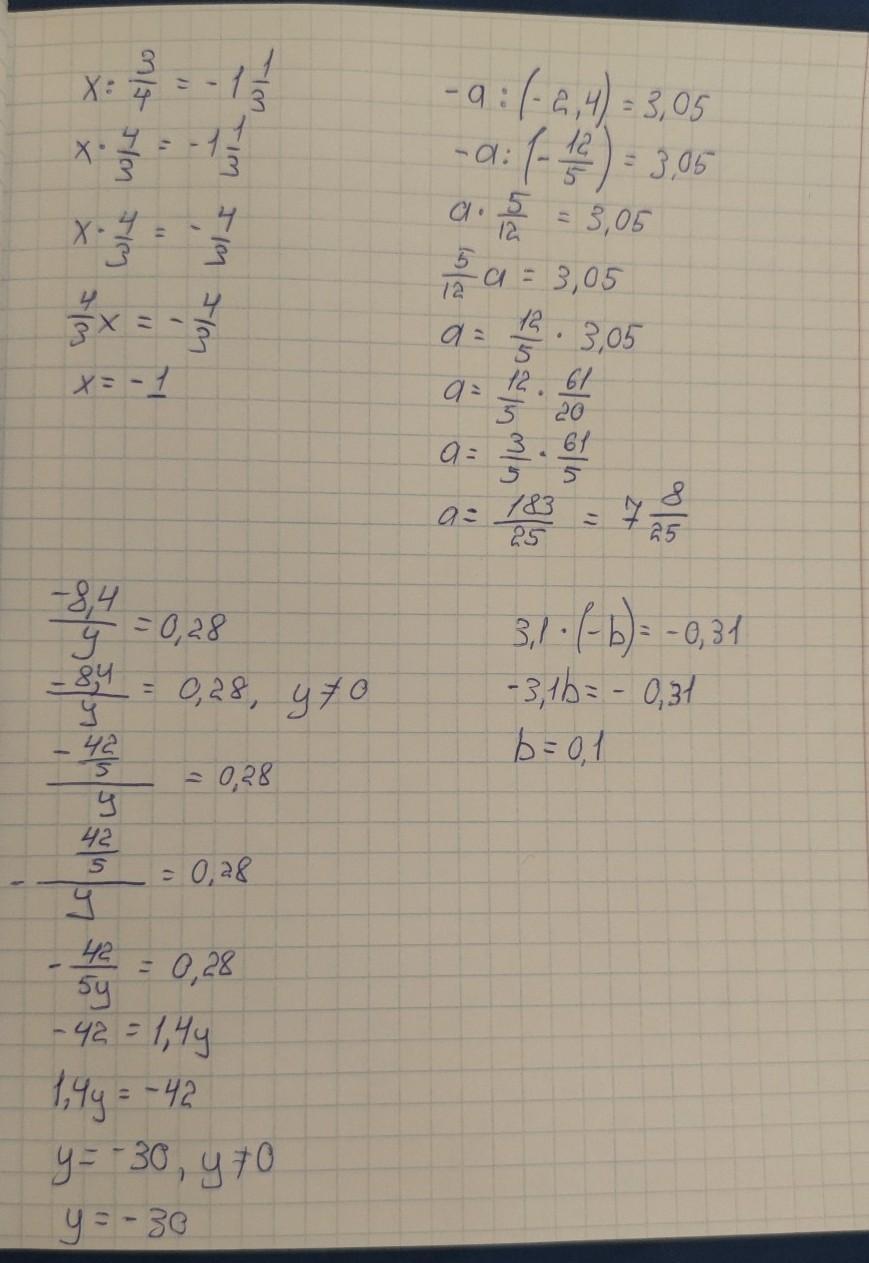 x : 3/4 = -1 1/3
x · 4/3 = -1 1/3
x · 4/3 = -4/3
4/3 x = -4/3
x = -1
-a : (-2,4) = 3,05
-a : (-12/5) = 3,05
a · 5/12 = 3,05
5/12 a = 3,05
a = 12/5 · 3,05
a = 12/5 · 61/20
a = 3/5 · 61/5
a = 183/25 = 7 8/25
-8,4/y = 0,28
-8,4/y = 0,28, y ≠ 0
(-42/5)/y = 0,28
-(42/5)/y = 0,28
-42/5y = 0,28
-42 = 1,4y
1,4y = -42
y = -30, y ≠ 0
y = -30
3,1 · (-b) = -0,31
-3,1b = -0,31
b = 0,1